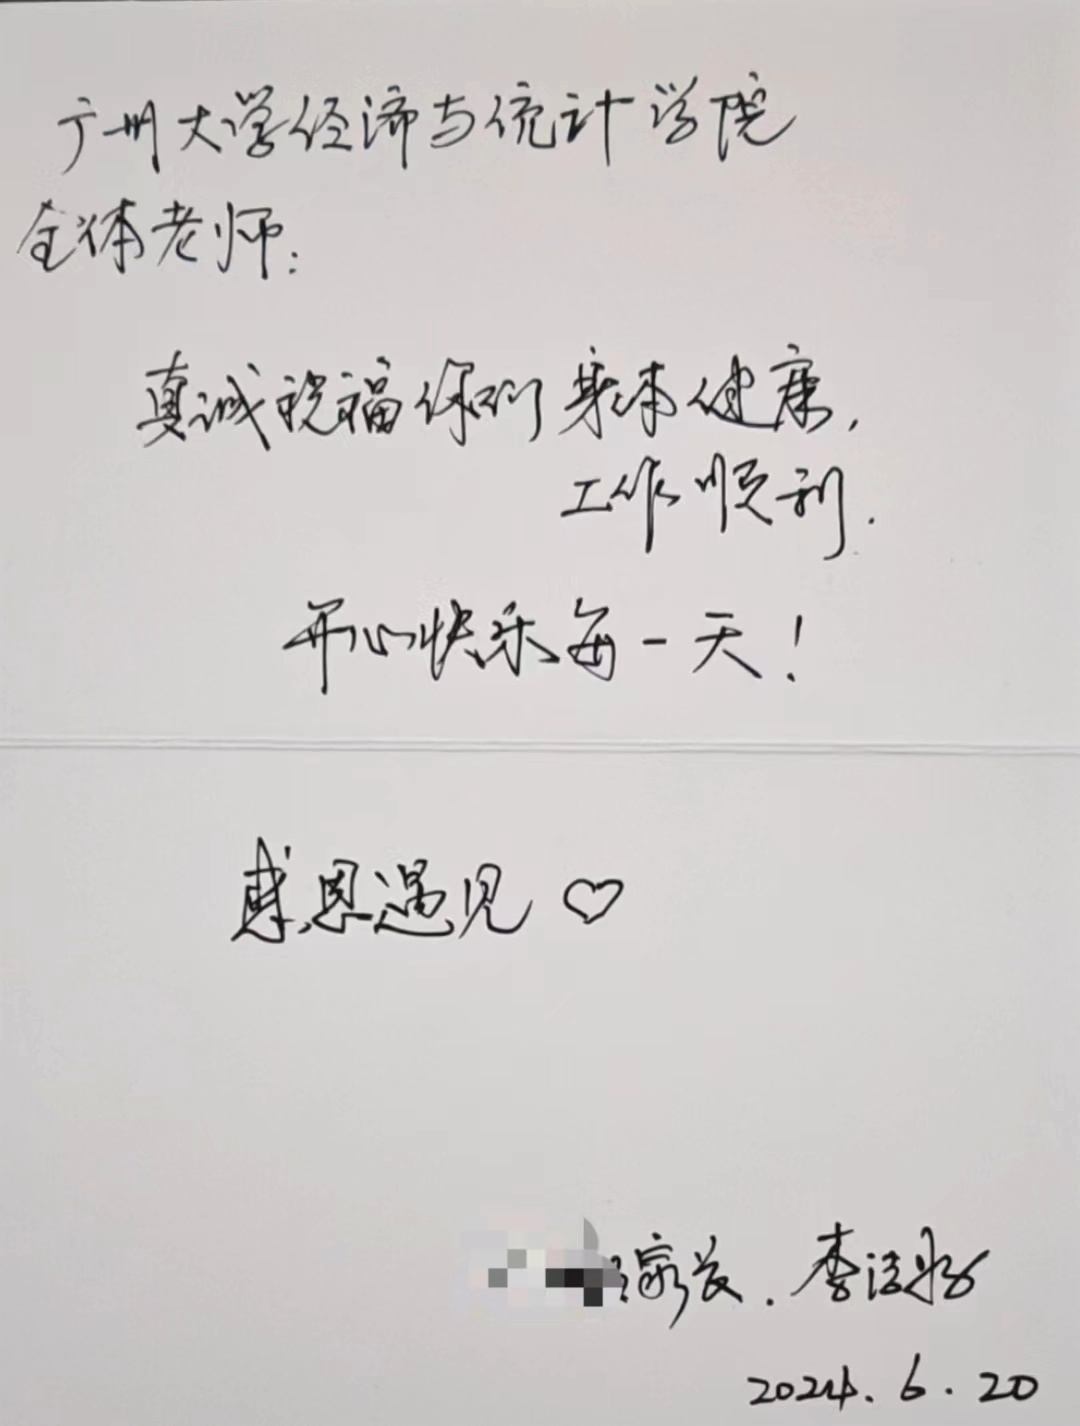 广州大学经济与统计学院
全体老师:
真诚祝福你们身体健康,
工作顺利.
开心快乐每一天!
感恩遇见♡
家长.李
2024.6.20